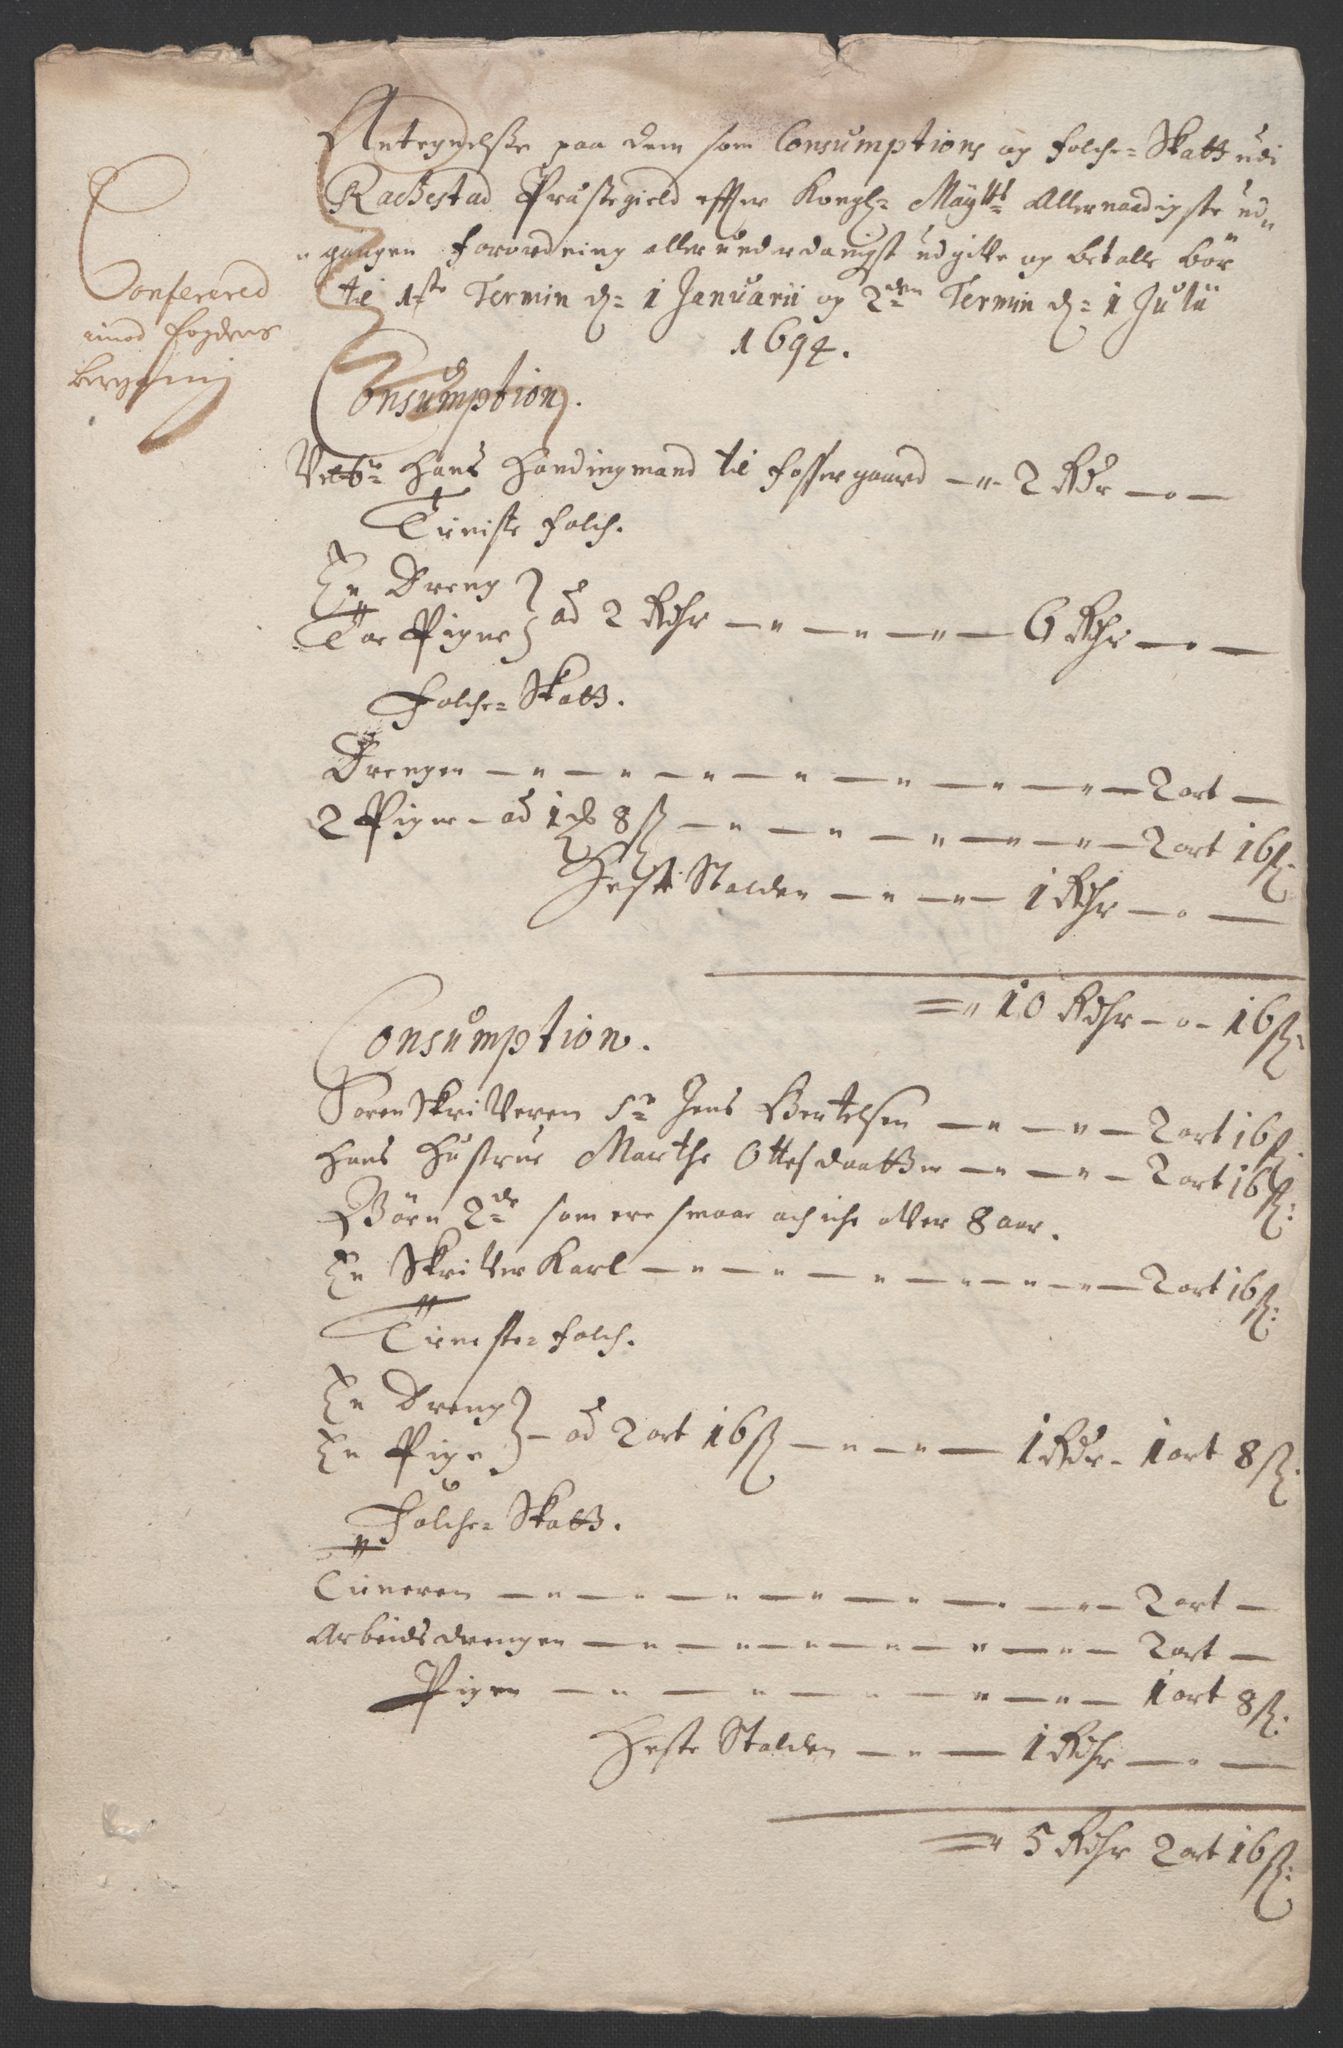 Conferered
imod fogdens
Beregning
Antegnelsse paa dem som Consumptions og folche- Skatt udi
Rackestad Præstegield effter Kongl: Maÿtts Allernaadigste ud-
gangen forordning allerunderdanigst udgifve og betalle bör
til 1ste Termin d: 1 Januarii og 2den Termin d: 1 Julii
1694.
Consumption.
Velb: Hans Handingmand til fossergaard - 2 Rdr - o -
Tieniste folch.
En Dreng
Toe Piger } ad 2 Rdhr - 6 Rdhr - o -
Folche- Skatt.
Drengen - 2 ort -
2 Piger - ad 1 ort 8 ß - 2 ort 16 ß:
Heste Stalden - 1 Rdhr - o -
10 Rdhr - o - 16 ß:
Consumption.
SorenSkrifveren Sr: Jens Bertelsen - 2 ort 16 ß
Hans Hustrue Marthe Ottesdaatter - 2 ort 16 ß:
Börn 2de som ere smaae och iche ofver 8 aar.
En Skrifver Karl - 2 ort 16 ß:
Tieniste- folch.
En Dreng
En Pige } - ad 2 ort 16 ß - 1 Rdr - 1 ort 8 ß
Folche- Skatt.
Tieneren - 2 ort -
Arbeidsdrengen - 2 ort -
Pigen - 1 ort 8 ß:
Heste Stalden - 1 Rdhr - o -
5 Rdhr 2 ort 16 ß: